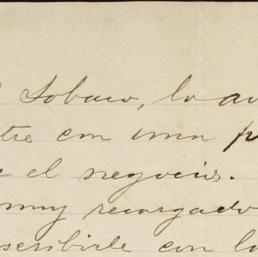 Lobaco, lo au
tre con una p
el negocio.
muy recargado
scribirle con la